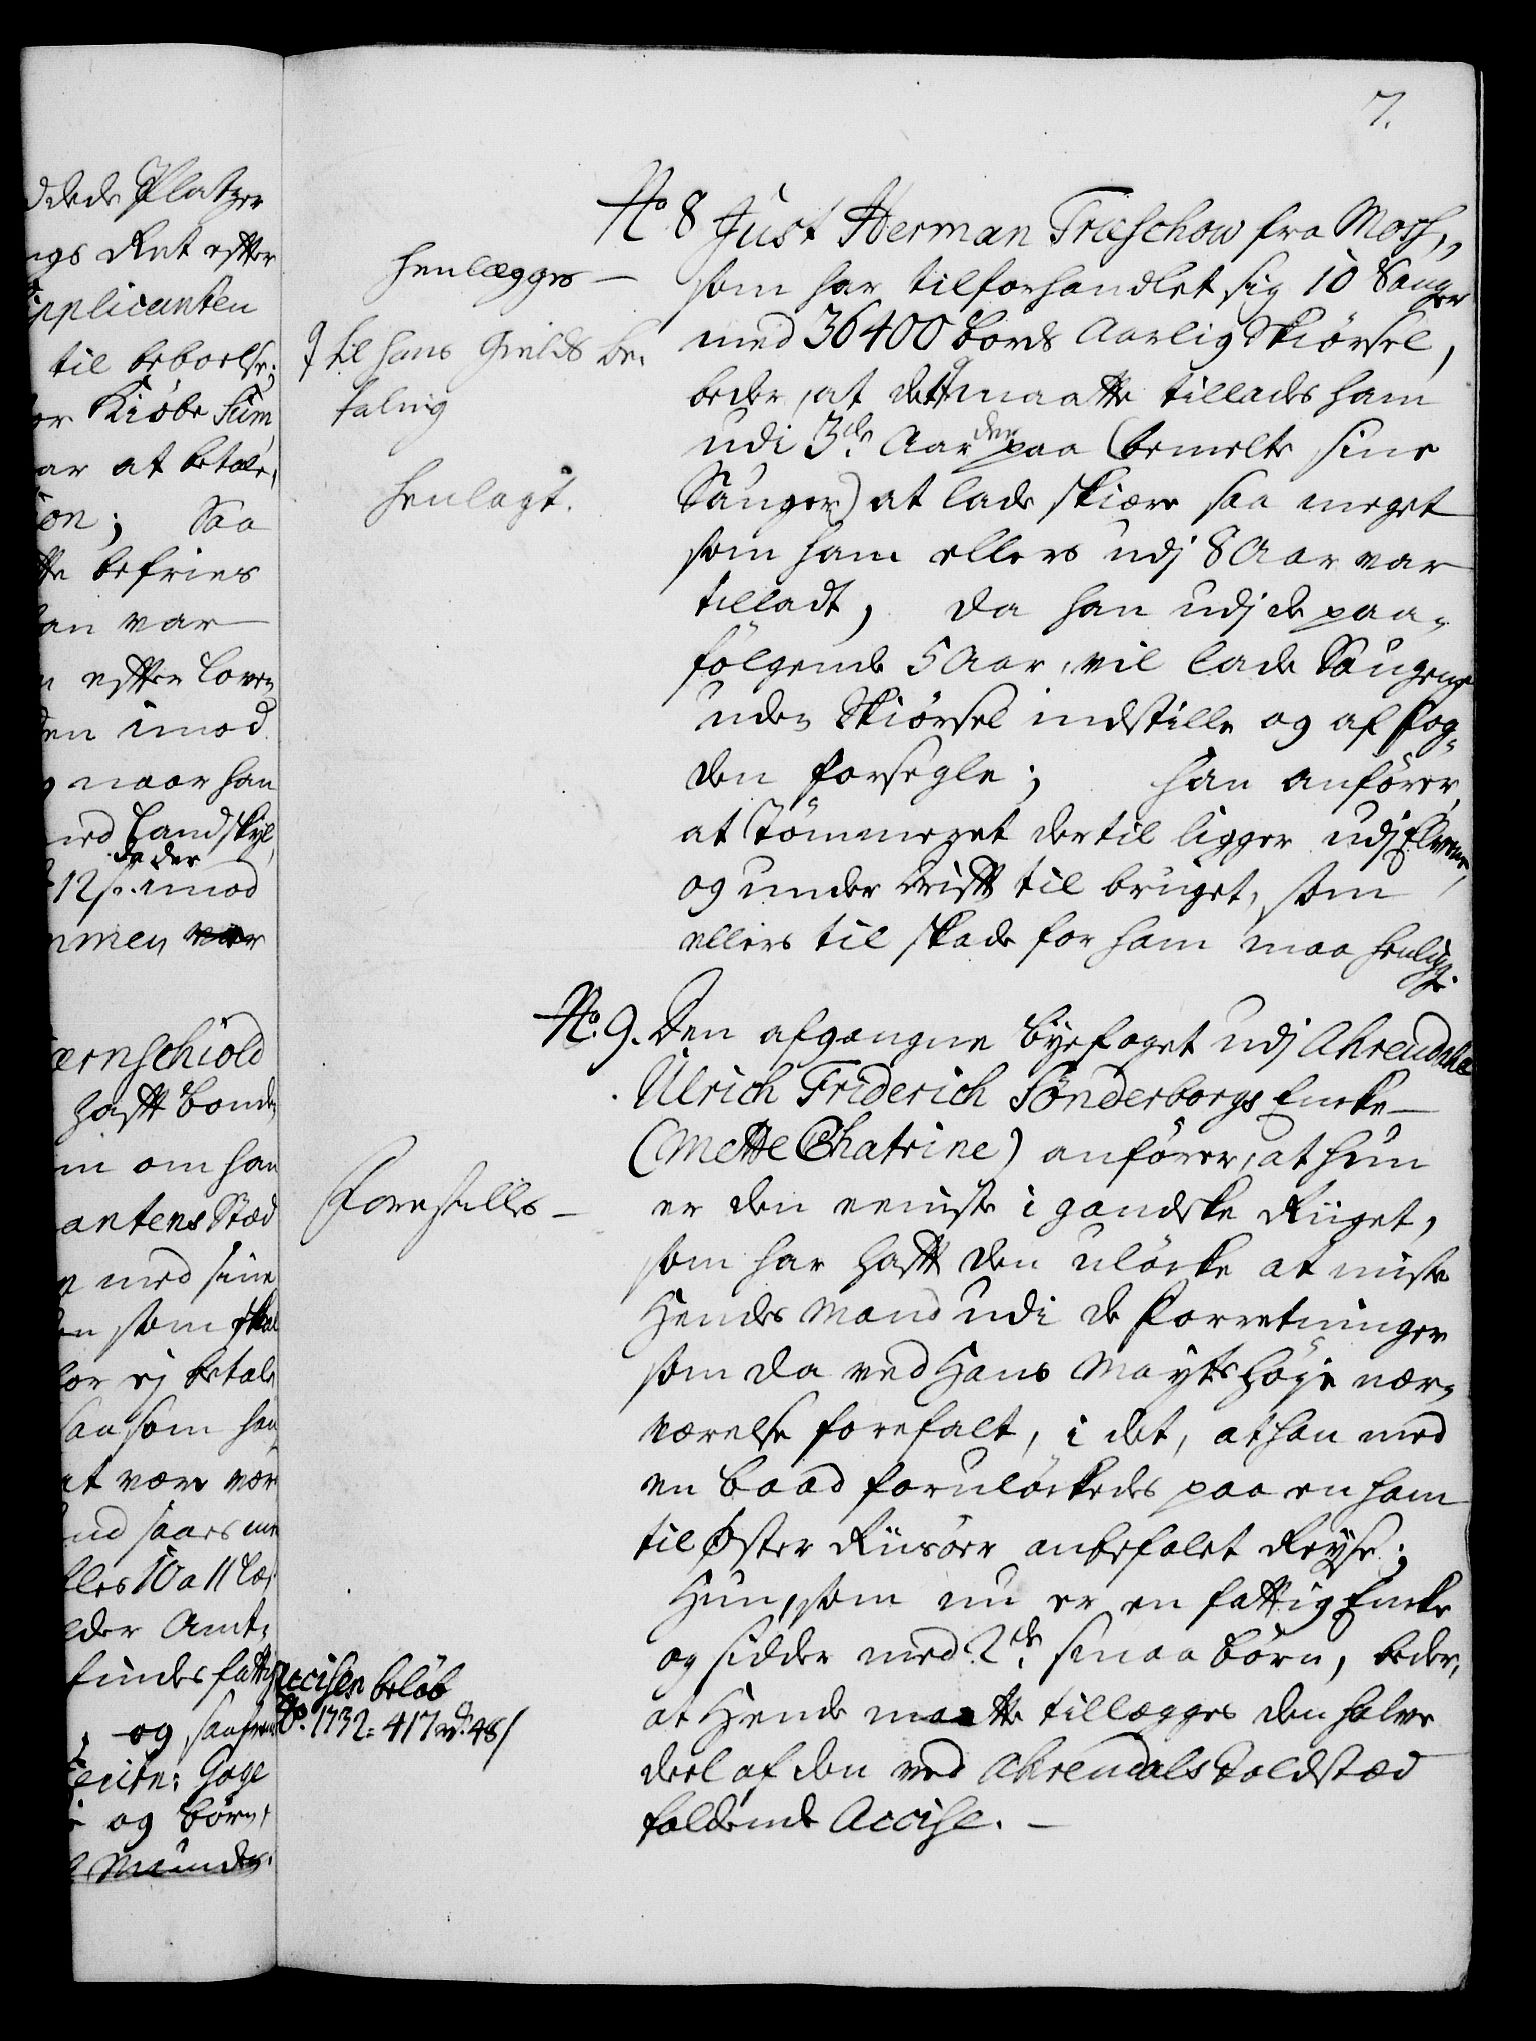 7.
No 8 Just Herman Træschow fra Moss,
som har tilforhandlet sig 10 Sauger
med 36400 bords Aarlig Skiørsel,
beder, at det maatte tillades ham
udi 3de Aar den paa (bemelte sine
Sauger) at lade skiære saa meget
som ham ellers udj 8 Aar var
tilladt, da han udj de paa-
følgende 5 Aar, vil lade Saugene
uden Skiørsel indstille og af Fog-
den forsegle; han anfører,
at Tømmeret dertil ligger udj Elvene,
og under drift til bruget, som
ellers til skade for ham maa henligge.
henlægges —
til hans Gields be-
taling
henlagt.
No. 9. Den afgangne byefoget udj Ahrendahl
Ulrich Friderich Sønderborgs Encke
(Mette Chatrine) anfører, at hun
er den eeniste i gandske Riiget,
som har hafft den ulöcke at miste
Hendes Mand udi de Forretninger
som da ved Hans Mayts höje nær-
værelse forefalt, i det, at han med
en baad forulöckedes paa en ham
til Øster Riisöer anbefalet Reyse;
Hun, som nu er en fattig Encke
og sidder med 2de smaa børn, beder,
at Hende maatte tillægges den halve
deel af den ved Ahrendals Toldstæd
faldende Accise. —
Forestilles —
Accisen beløb
Ao. 1732 = 417 rd. 48 s
ddede Platzer
ngs Ret efter
upplicanten
til beboelse;
or Kiøbe Sum
ar at betale,
on; Saa
tte befries
an var
n efter Loven
den imod
naar han
ned Landskyl
da der
12 s. imod
mmen
ernschiold
hafft bonde
in om han
antens Stæd
med sine
en som skal
or ej betale
saasom han
at være vær
nd saaes
lles 10 a 11 læ
lder Amt
findes fattig
og saafremt
Gage
og børn,